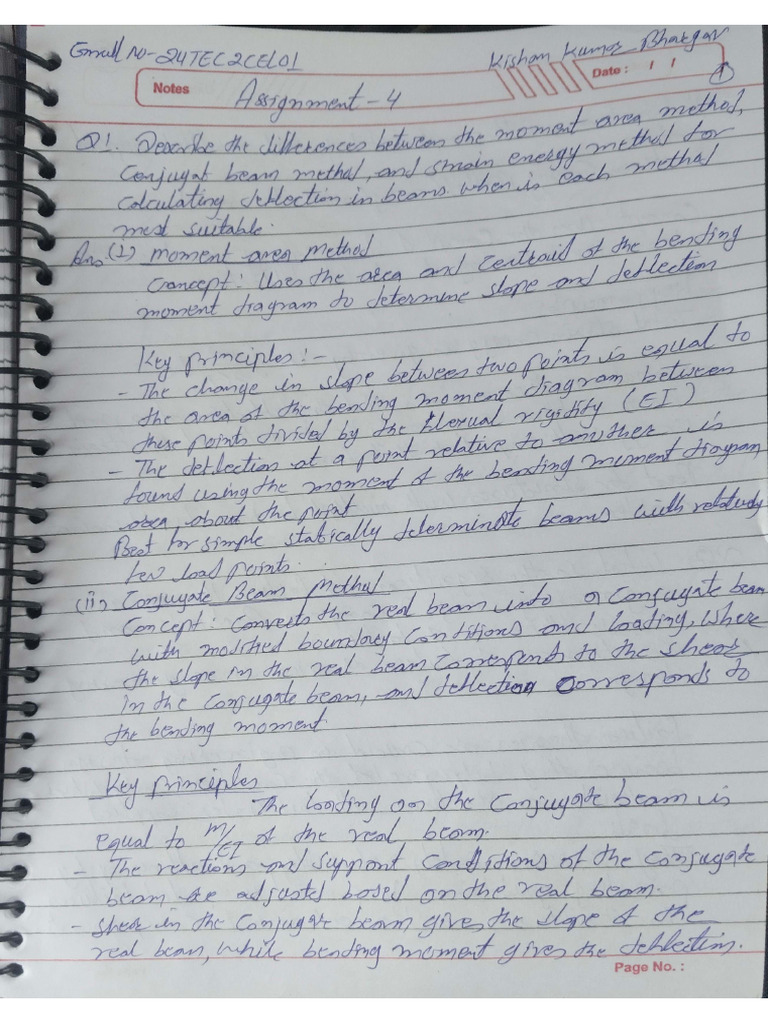 Enroll No-24TEC2CEL01
Kishan Kumar Bhargav
Notes
Date : / /
1
Assignment-4
Q1. Describe the differences between the moment area method,
Conjugat beam method, and strain energy method for
calculating deflection in beams when is each method
most suitable.
Ans (1) moment area Method
Concept: Uses the area and centroid of the bending
moment diagram to determine slope and deflection
Key principles:-
- The change in slope between two points is equal to
the area of the bending moment diagram between
these points divided by the flexual rigidity (EI)
- The deflection at a point relative to another is
found using the moment of the bending moment diagram
area, about the point
Best for simple statically determinate beams with relatively
few load points.
(ii) Conjugate Beam Method
Concept: Converts the real beam into a Conjugate beam
with modified boundary conditions and loading, where
the slope in the real beam corresponds to the shear
in the conjugate beam, and deflection corresponds to
the bending moment.
Key principles
The loading on the Conjugate beam is
equal to M/EI of the real beam.
- The reactions and support conditions of the conjugate
beam are adjusted based on the real beam.
- shear in the Conjugate beam gives the slope of the
real beam, while bending moment gives the deflection.
Page No. :